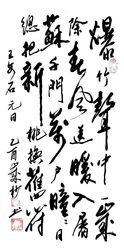 爆竹聲中一歲
除春風送暖入屠
蘇千門萬戶曈々日
總把新桃換舊符
王安石元日 乙酉歲杪